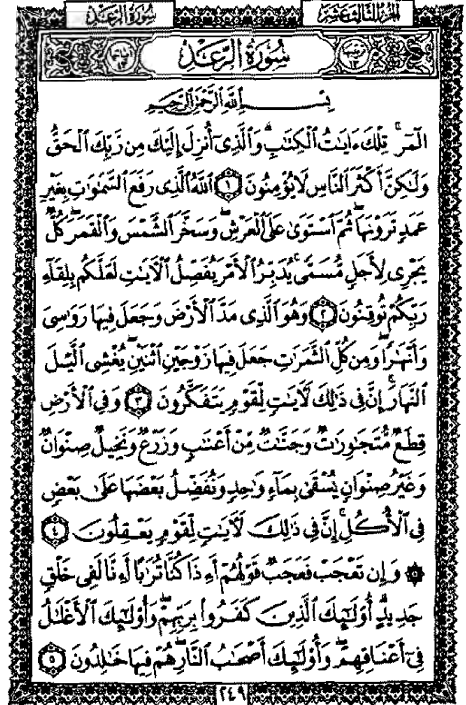 سُورَةُ الرَّعۡدِ
الجزء الثالث عشر
سُورَةُ الرَّعۡدِ
بِسۡمِ ٱللَّهِ ٱلرَّحۡمَٰنِ ٱلرَّحِيمِ
الٓمٓرۚ تِلۡكَ ءَايَٰتُ ٱلۡكِتَٰبِۗ وَٱلَّذِيٓ أُنزِلَ إِلَيۡكَ مِن رَّبِّكَ ٱلۡحَقُّ
وَلَٰكِنَّ أَكۡثَرَ ٱلنَّاسِ لَا يُؤۡمِنُونَ ١ ٱللَّهُ ٱلَّذِي رَفَعَ ٱلسَّمَٰوَٰتِ بِغَيۡرِ
عَمَدٖ تَرَوۡنَهَاۖ ثُمَّ ٱسۡتَوَىٰ عَلَى ٱلۡعَرۡشِۖ وَسَخَّرَ ٱلشَّمۡسَ وَٱلۡقَمَرَۖ كُلّٞ
يَجۡرِي لِأَجَلٖ مُّسَمّٗىۚ يُدَبِّرُ ٱلۡأَمۡرَ يُفَصِّلُ ٱلۡأٓيَٰتِ لَعَلَّكُم بِلِقَآءِ
رَبِّكُمۡ تُوقِنُونَ ٢ وَهُوَ ٱلَّذِي مَدَّ ٱلۡأَرۡضَ وَجَعَلَ فِيهَا رَوَٰسِيَ
وَأَنۡهَٰرٗاۖ وَمِن كُلِّ ٱلثَّمَرَٰتِ جَعَلَ فِيهَا زَوۡجَيۡنِ ٱثۡنَيۡنِۖ يُغۡشِي ٱلَّيۡلَ
ٱلنَّهَارَۚ إِنَّ فِي ذَٰلِكَ لَأٓيَٰتٖ لِّقَوۡمٖ يَتَفَكَّرُونَ ٣ وَفِي ٱلۡأَرۡضِ
قِطَعٞ مُّتَجَٰوِرَٰتٞ وَجَنَّٰتٞ مِّنۡ أَعۡنَٰبٖ وَزَرۡعٞ وَنَخِيلٞ صِنۡوَانٞ
وَغَيۡرُ صِنۡوَانٖ يُسۡقَىٰ بِمَآءٖ وَٰحِدٖ وَنُفَضِّلُ بَعۡضَهَا عَلَىٰ بَعۡضٖ
فِي ٱلۡأُكُلِۚ إِنَّ فِي ذَٰلِكَ لَأٓيَٰتٖ لِّقَوۡمٖ يَعۡقِلُونَ ٤
۞ وَإِن تَعۡجَبۡ فَعَجَبٞ قَوۡلُهُمۡ أَءِذَا كُنَّا تُرَٰبًا أَءِنَّا لَفِي خَلۡقٖ
جَدِيدٍۗ أُوْلَٰٓئِكَ ٱلَّذِينَ كَفَرُواْ بِرَبِّهِمۡۖ وَأُوْلَٰٓئِكَ ٱلۡأَغۡلَٰلُ
فِيٓ أَعۡنَاقِهِمۡۖ وَأُوْلَٰٓئِكَ أَصۡحَٰبُ ٱلنَّارِۖ هُمۡ فِيهَا خَٰلِدُونَ ٥
٢٤٩